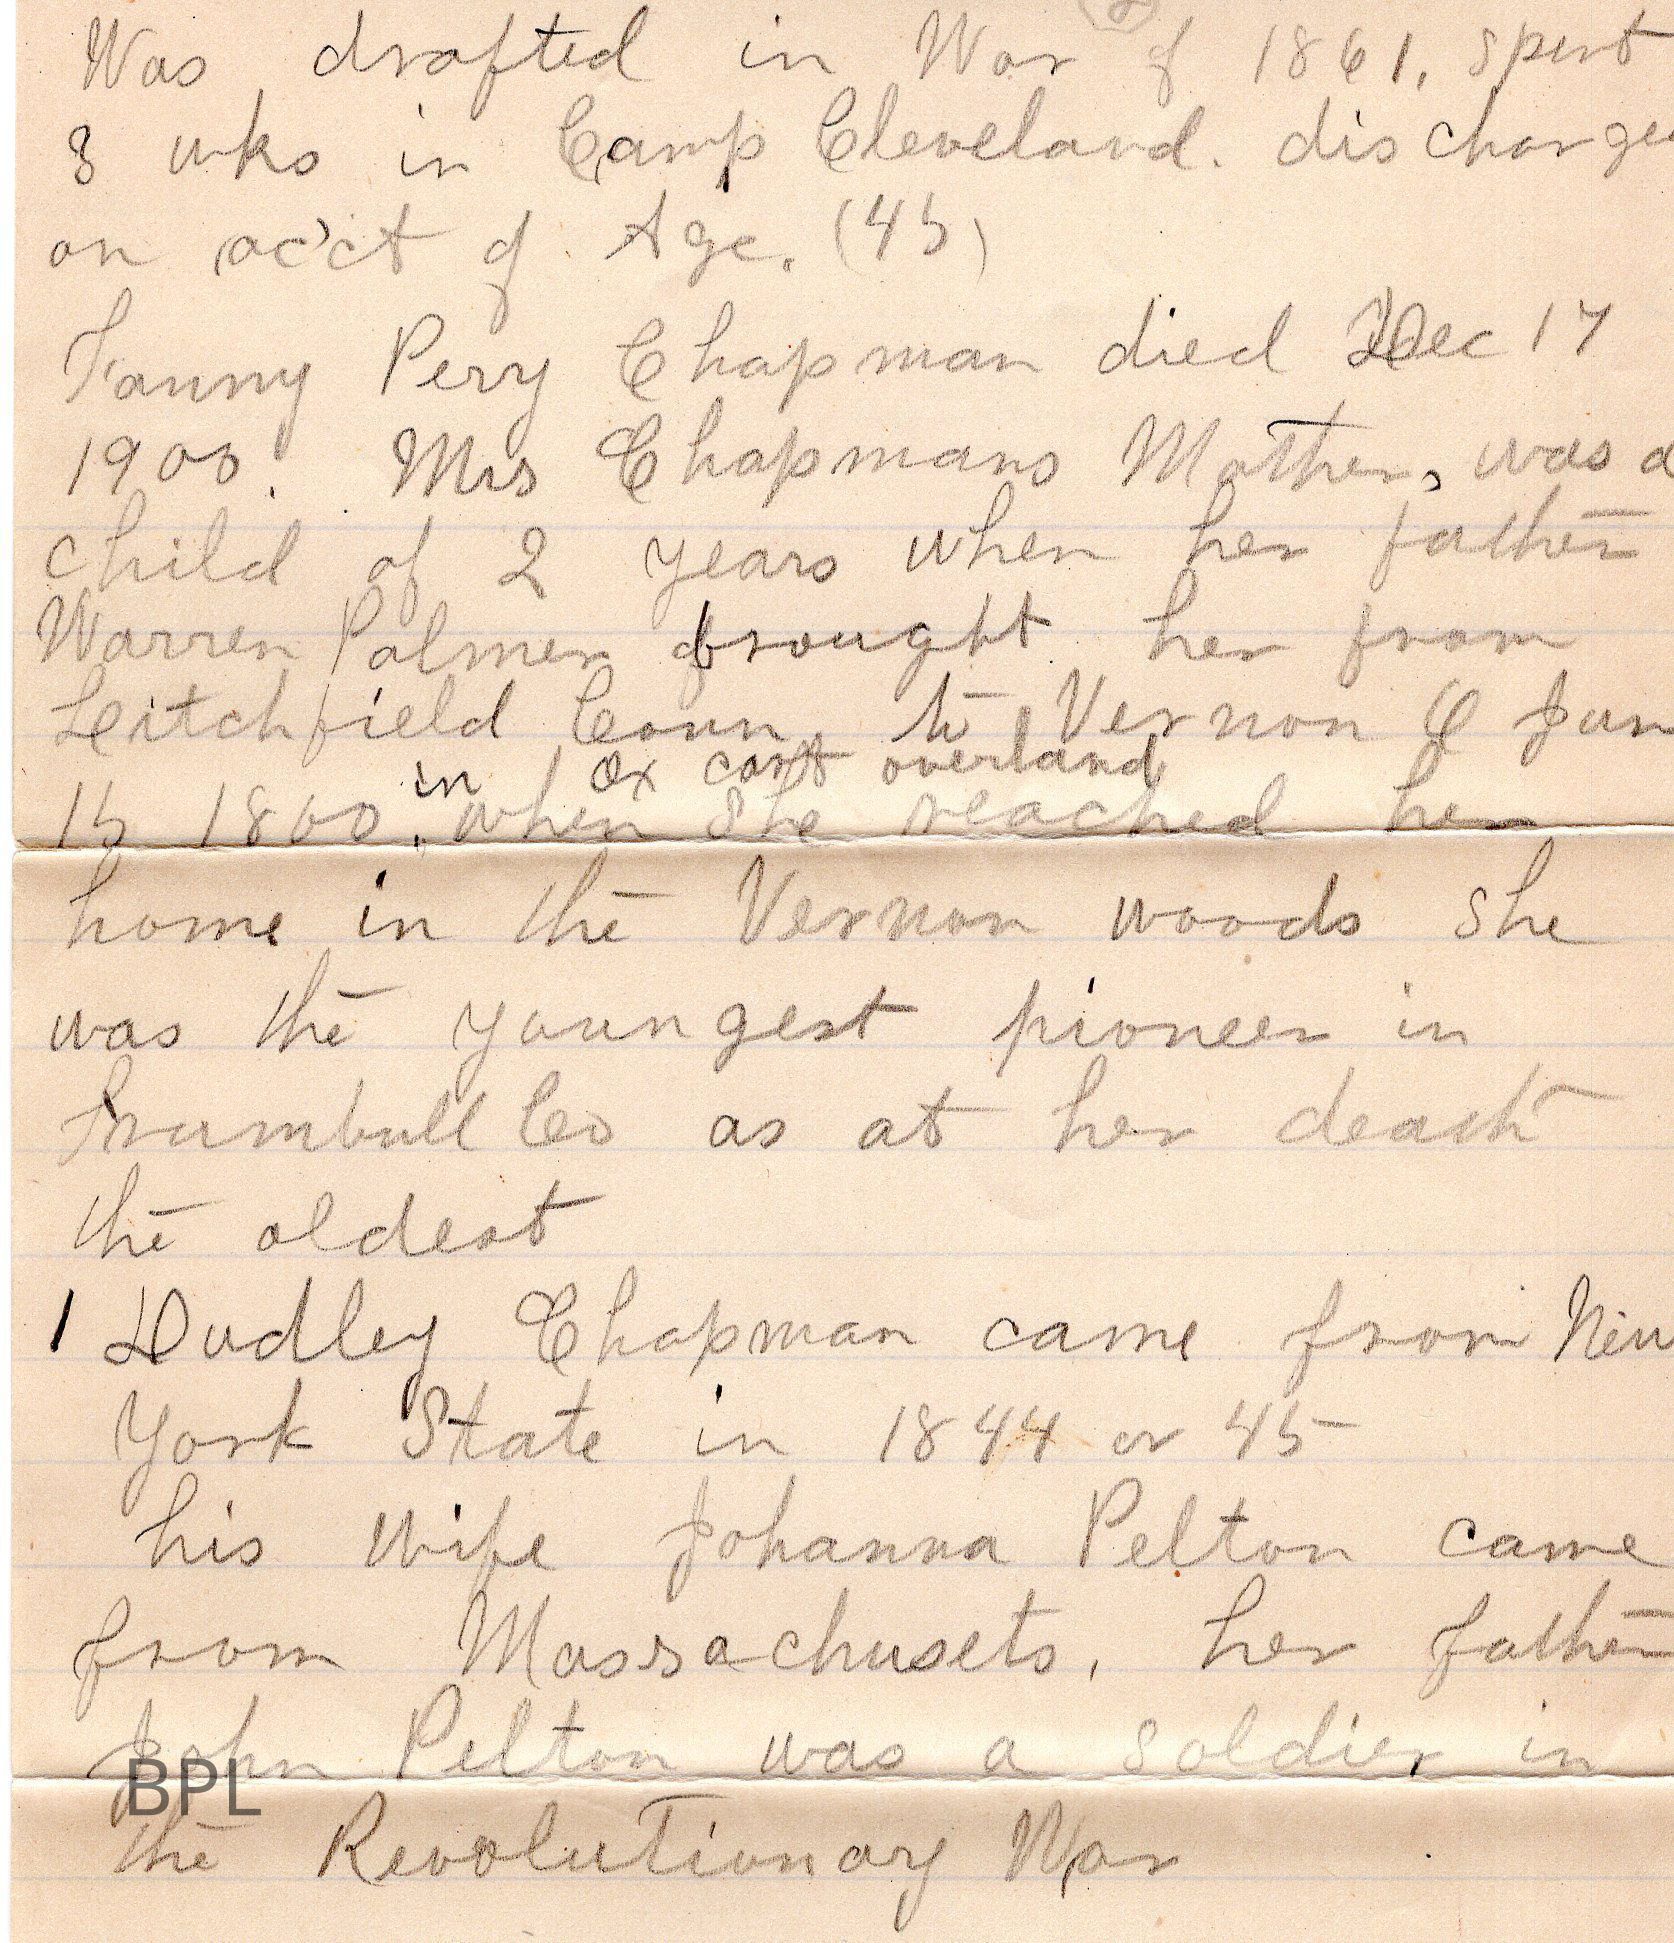 (2)
Was drafted in War of 1861. spent
3 wks in Camp Cleveland. discharged
on ac'ct of Age. (45)
Fanny Pery Chapman died Dec 17
1900. Mrs Chapmans Mother, was a
child of 2 years when her father
Warren Palmer brought her from
Leitchfield Conn, to Vernon O Jun
in Ox cart overland
15 1800. when she reached her
home in the Vernon woods she
was the youngest pioneer in
Trumbull Co as at her death
the oldest
1 Dudley Chapman came from New
York State in 1844 or 45
his wife Johanna Pelton came
from Massachusets, her father
John Pelton was a soldier in
the Revolutionary War
BPL